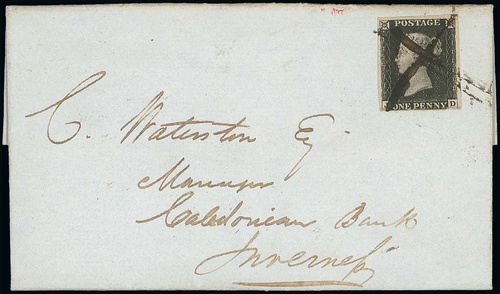 POSTAGE
ONE PENNY
D
C. Waterston Esq
Manager
Caledonian Bank
Inverness